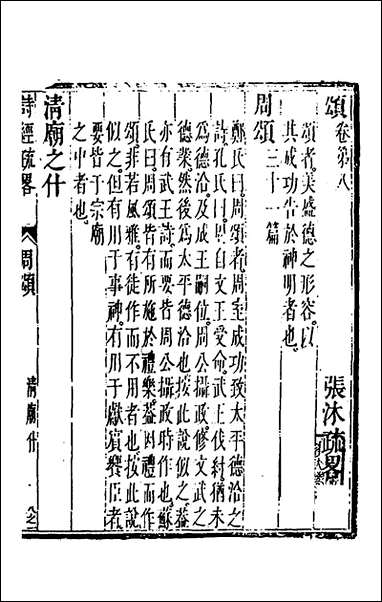 頌 卷第八 張沐疏略
頌者美盛德之形容以
其成功告於神明者也
周頌三十一篇
鄭氏曰周頌者周室成功致太平德洽之
詩孔氏曰即自文王受命武王伐紂猶未
為德洽及成王嗣位周公攝政修文武之
德業然後為太平德洽也按此說似之葢
亦有武王詩而要皆周公攝政時作也蘇
氏曰周頌皆有所施於禮樂葢因禮而作
頌非若風雅有徒作而不用者也按此說
似之但有用于事神有用于獻賓饗臣者
要皆于宗廟
之中者也
清廟之什
詩經疏略 周頌 清廟什